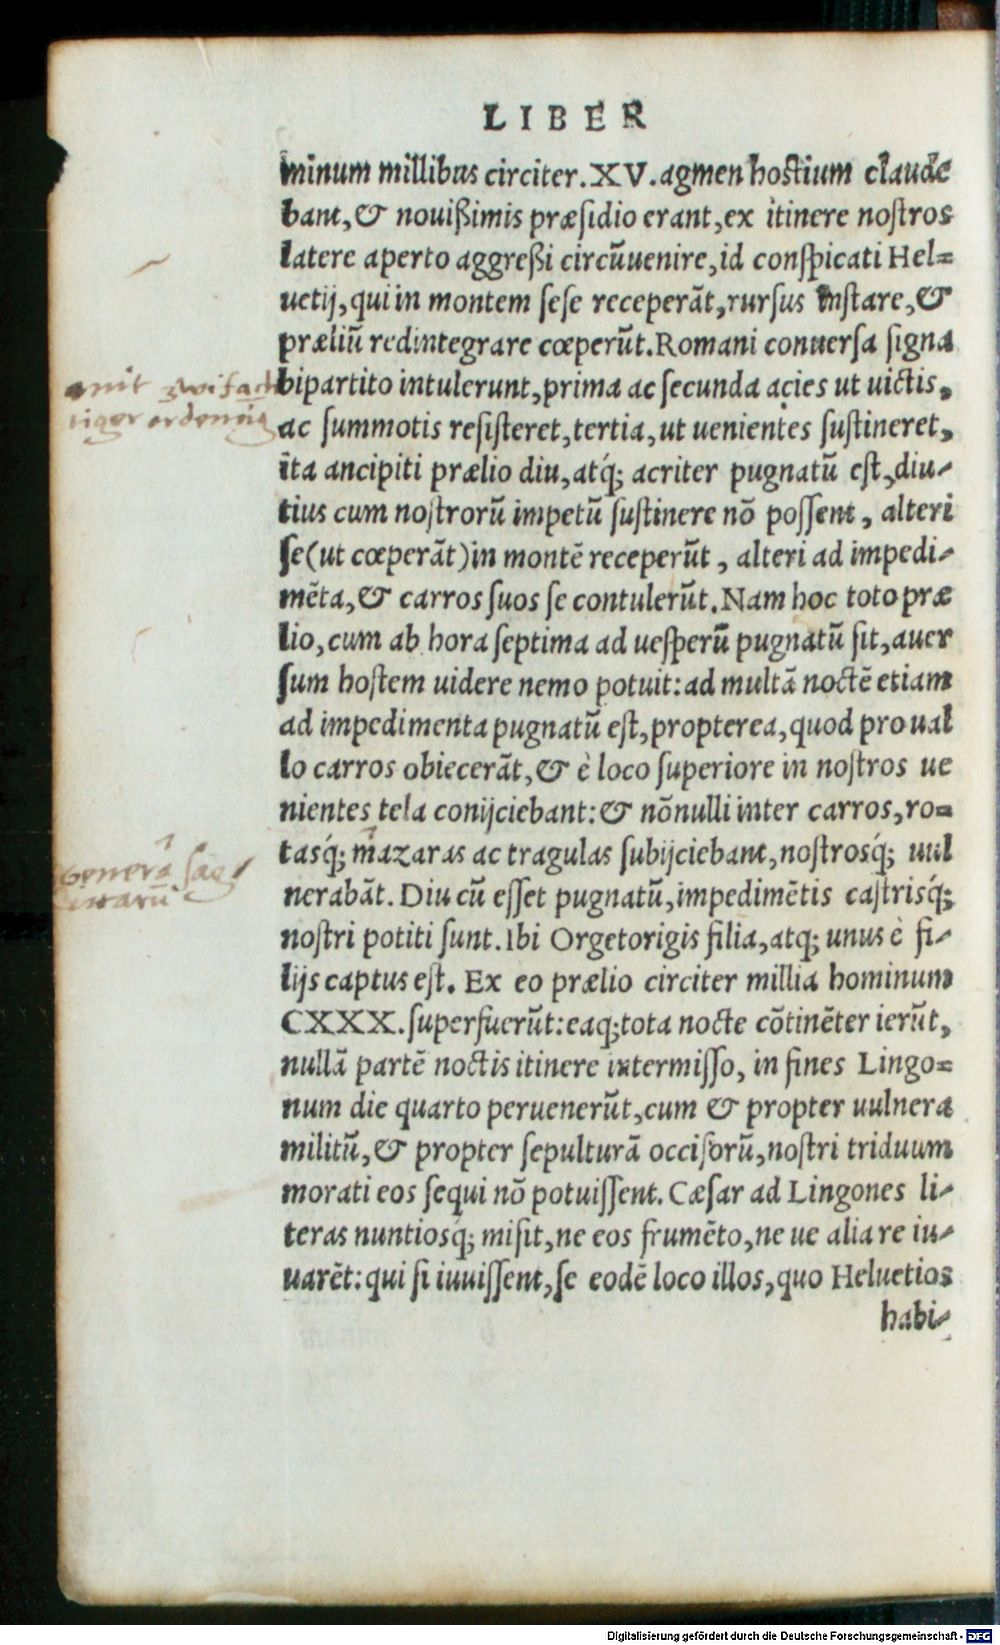 LIBER
minum millibus circiter. XV. agmen hostium claude
bant, & nouißimis præsidio erant, ex itinere nostros
latere aperto aggreßi circũuenire, id conspicati Hel=
uetij, qui in montem sese receperãt, rursus instare, &
præliũ redintegrare cœperũt. Romani conuersa signa
bipartito intulerunt, prima ac secunda acies ut uictis,
ac summotis resisteret, tertia, ut uenientes sustineret,
ita ancipiti prælio diu, atq́; acriter pugnatũ est, diu-
tius cum nostrorũ impetũ sustinere nõ possent, alteri
se (ut cœperãt) in montẽ receperũt, alteri ad impedi-
mẽta, & carros suos se contulerũt. Nam hoc toto præ
lio, cum ab hora septima ad uesperũ pugnatũ sit, auer
sum hostem uidere nemo potuit: ad multã noctẽ etiam
ad impedimenta pugnatũ est, propterea, quod pro ual
lo carros obiecerãt, & è loco superiore in nostros ue
nientes tela conijciebant: & nõnulli inter carros, ro=
tasq́; mazaras ac tragulas subijciebant, nostrosq́; uul
nerabãt. Diu cũ esset pugnatũ, impedimẽtis castrisq́;
nostri potiti sunt. Ibi Orgetorigis filia, atq; unus è fi-
lijs captus est. Ex eo prælio circiter millia hominum
CXXX. superfuerũt: eaq; tota nocte cõtinẽter ierũt,
nullã partẽ noctis itinere intermisso, in fines Lingo=
num die quarto peruenerũt, cum & propter uulnera
militũ, & propter sepulturã occisorũ, nostri triduum
morati eos sequi nõ potuissent. Cæsar ad Lingones li-
teras nuntiosq́; misit, ne eos frumẽto, ne ue alia re iu-
uarẽt: qui si iuuissent, se eodẽ loco illos, quo Heluetios
habi-
mit zwifach
tiger ordennũg
Genera sag
ittarũ
Digitalisierung gefördert durch die Deutsche Forschungsgemeinschaft - DFG